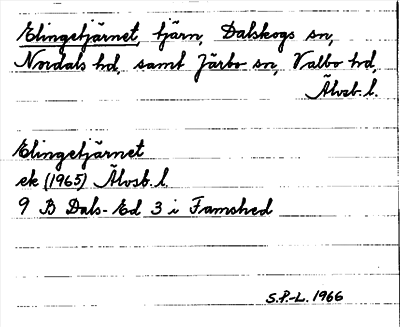 Elingetjärnet, tjärn, Dalskogs sn,
Nordals hd, samt Järbo sn, Valbo hd,
Älvsb. l.
Elingetjärnet
ek (1965) Älvsb. l.
9 B Dals-Ed 3 i Famshed
S.P-L. 1966